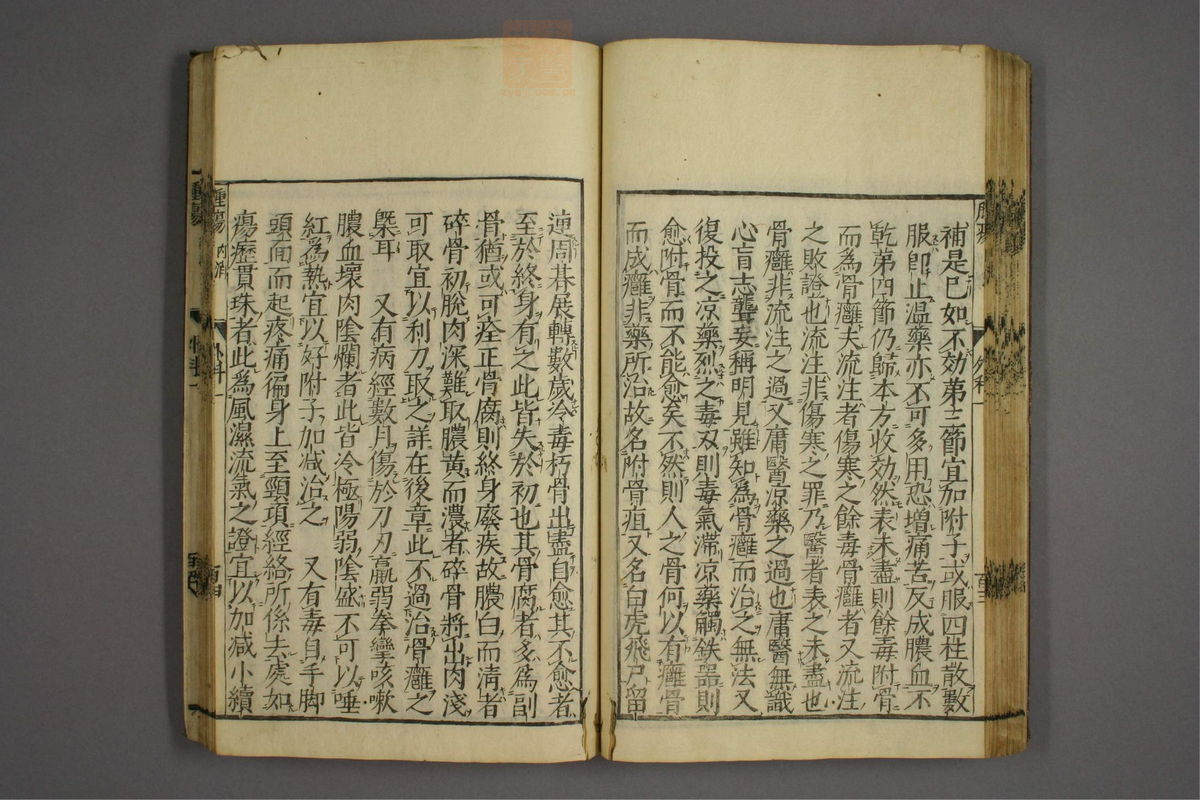 補是已如不効第三節宜加附子或服四柱散數
服卽止温藥亦不可多用恐增痛苦反成膿血不
乾第四節仍歸本方收効然表未盡則餘毒附骨
而為骨癰夫流注者傷寒之餘毒骨癰者又流注
之敗證也流注非傷寒之罪乃醫者表之未盡也
骨癰非流注之過又庸醫凉藥之過也庸醫無識
心盲志聾妄稱明見雖知為骨癰而治之無法又
復投之凉藥烈之毒刄則毒氣滯凉藥觸鉄器則
愈附骨而不能愈矣不然則人之骨何以有癰骨
而成癰非藥所治故名附骨疽又名白虎飛尸留
連周朞展轉數歲冷毒朽骨出盡自愈其不愈者
至於終身有之此皆失於初也其骨腐者多爲副
骨猶或可痊正骨腐則終身廢疾故膿白而清者
碎骨初脫肉深難取膿黄而濃者碎骨將出肉淺
可取宜以利刀取之詳在後章此不過治骨癰之
槩耳　又有病經數月傷於刀刃羸弱拳攣咳嗽
膿血壞肉陰爛者此皆冷極陽弱陰盛不可以唾
紅為熱宜以好附子加减治之　又有毒自手脚
頭面而起疼痛徧身上至頸項經絡所係去處如
瘍癧貫珠者此爲風濕流氣之證宜以加减小續
腫瘍 内消
外科一
百四
外科一